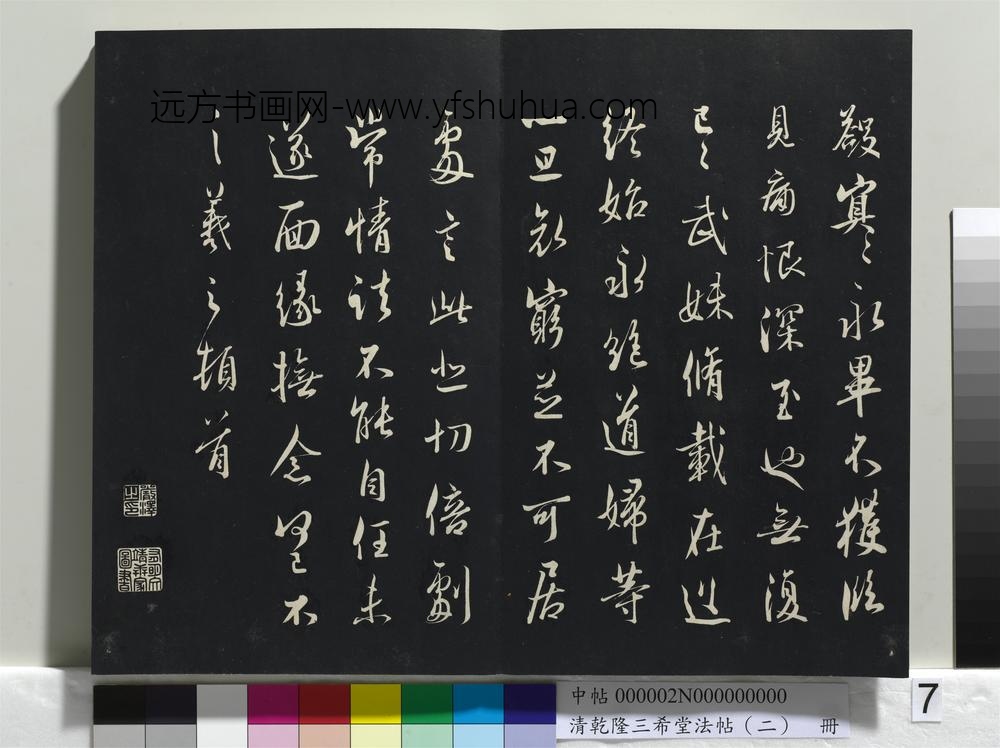 永畢不獲臨
見痛恨深至也無復
已〻武妹脩載在近
終始永絕道婦等
一旦哀窮並不可居
處言此悲切倍劇
常情諸不能自任未
遂面緣撫念何已不
羲之頓首
远方书画网-www.yfshuhua.com
中帖 000002N000000000
清乾隆三希堂法帖（二） 冊
7